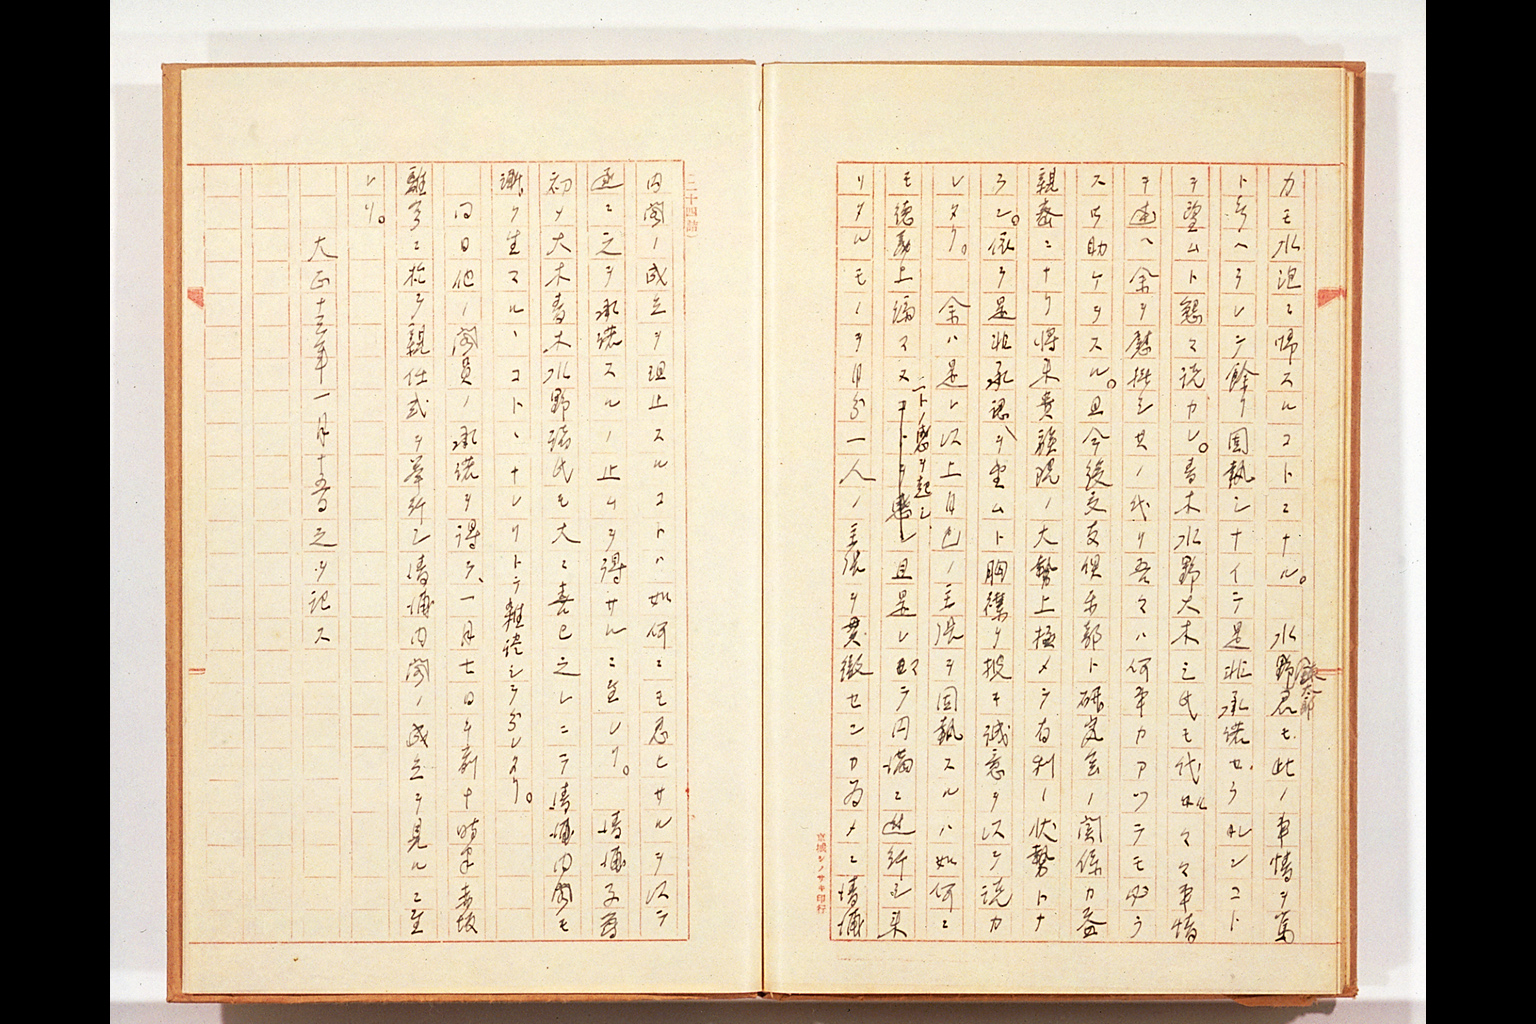 カモ水泡ニ帰スルコトニナル。水野君モ此ノ事情ヲ
錬太郎
ト考ヘラレンテ餘リ固執シナイテ是非承諾セラレンコト
ヲ望ムト懇々説カレ。青木水野大木三氏モ代ルル々々事情
ヲ述ヘ余ヲ慰撫シ其ノ代リ吾々ハ何事カアツテモ必ラ
ス必助ケヲスル。且今後交友倶楽部ト研究会ノ関係カ益
親密ニナリ将来貴族院ノ大勢上極メテ有利ノ状勢トナ
ラン。依テ是非承認ヲ望ムト胸襟ヲ披キ誠意ヲ以テ説カ
レタリ。余ハ是レ以上自己ノ主張ヲ固執スルハ如何ニ
モ徳義上済マヌ
コトノ感ヲ起シ
且是レ迄円満ニ進行シ来
リタルモノヲ自分一人ノ主張ヲ貫徹センカ為メニ清浦
内閣ノ成立ヲ阻止スルコトハ如何ニモ忍ヒサルヲ以テ
遂ニ之ヲ承諾スルノ止ムヲ得サルニ至レリ。清浦子爵
初メ大木青木水野諸氏モ大ニ喜ヒ之レニテ清浦内閣モ
漸ク生マルヽコトヽナレリトテ雑談シテ分レタリ。
同日他ノ閣員ノ承諾ヲ得テ、一月七日午前十時半赤坂
離宮ニ於テ親任式ヲ挙行シ清浦内閣ノ成立ヲ見ルニ至
レリ。
大正十三年一月十五日之ヲ記ス
二十四詰)
京城シノサキ印行